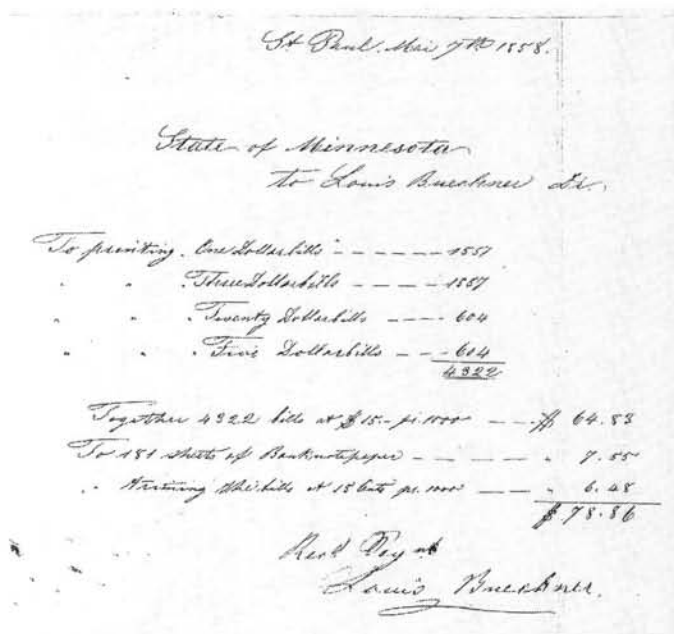 St Paul. Mai 7th 1858.
State of Minnesota
to Louis Buechner Dr.
To printing. One Dollarbills - - - - - 1557
" " " Three Dollarbills - - - - 1557
" " " Twenty Dollarbills - - - 604
" " " Five Dollarbills - - - 604
4322
Together 4322 bills at $15.- pr. 1000 - - - $ 64.83
To 181 sheets of Banknotepaper - - - - - " 7.55
" the bills at 15 Cents pr. 1000 - - - " 6.48
$ 78.86
Recd Paymt
Louis Buechner.